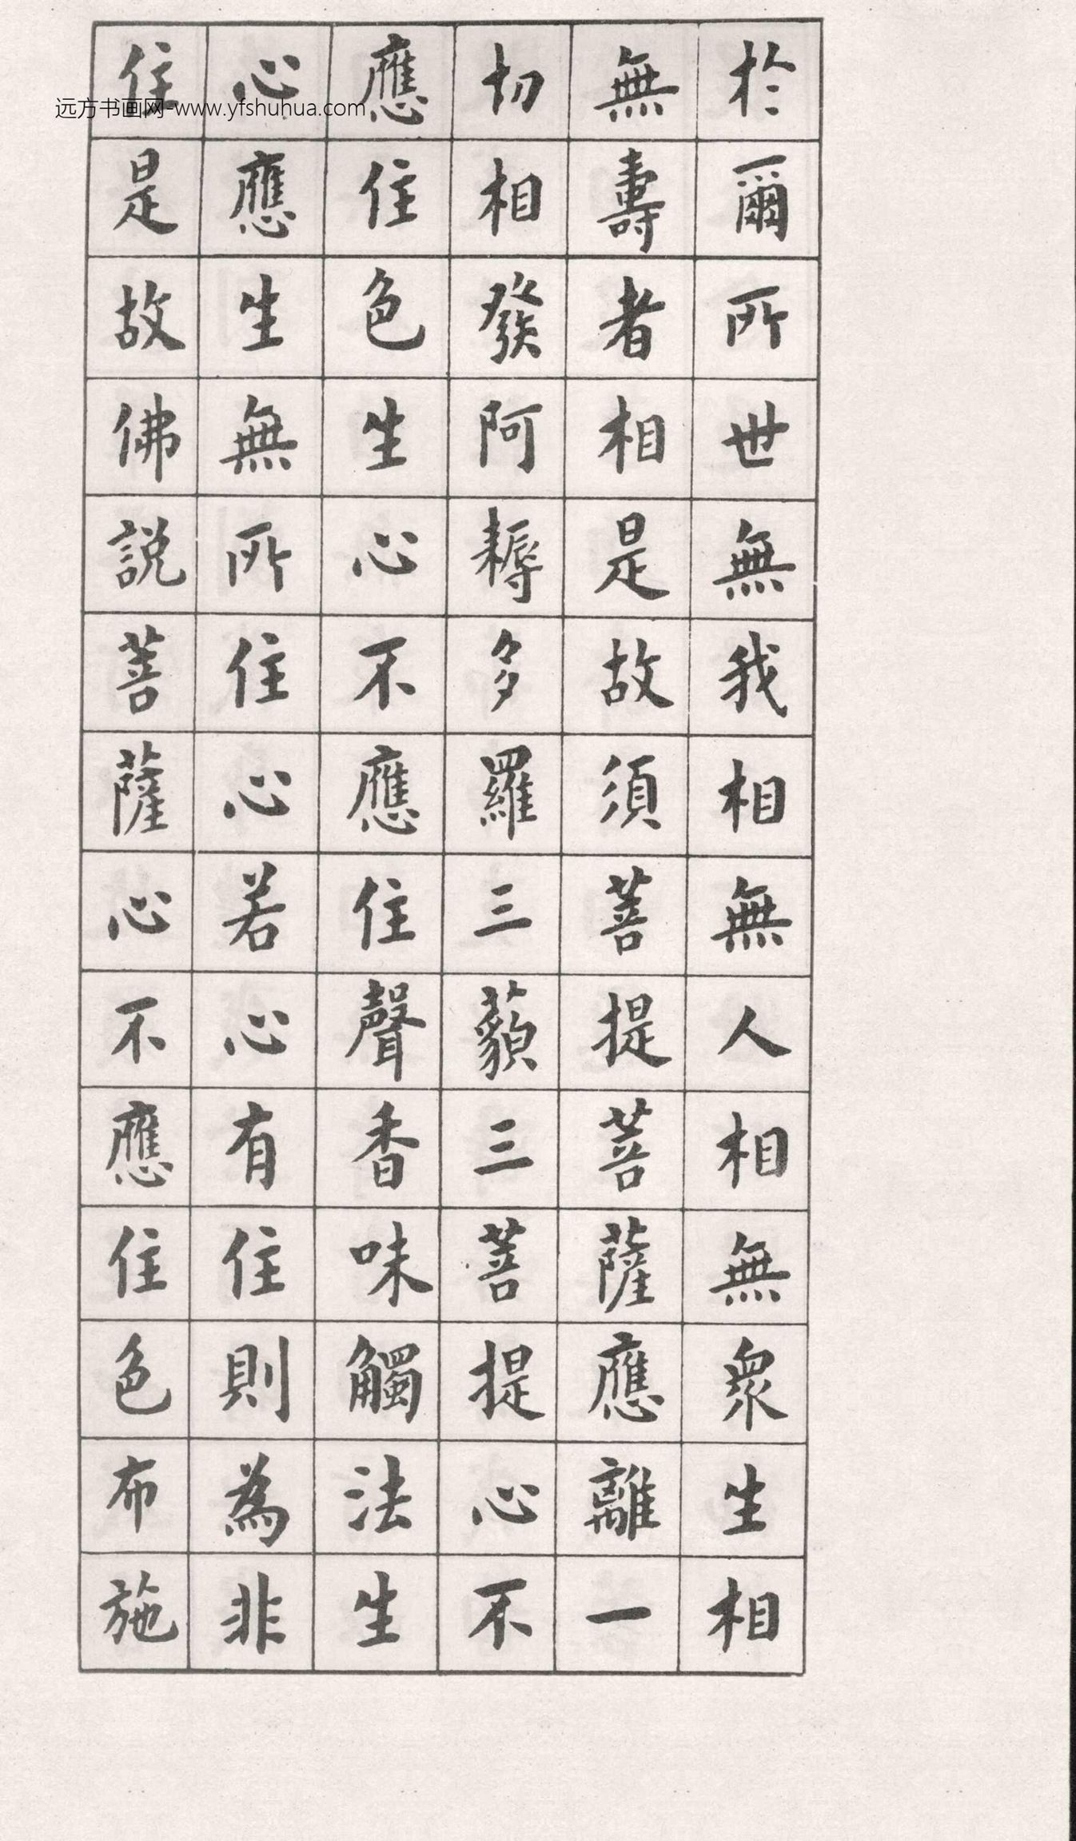 於爾所世無我相無人相無衆生相
無壽者相是故須菩提菩薩應離一
切相發阿耨多羅三藐三菩提心不
應住色生心不應住聲香味觸法生
心應生無所住心若心有住則為非
住是故佛說菩薩心不應住色布施
远方书画网-www.yfshuhua.com